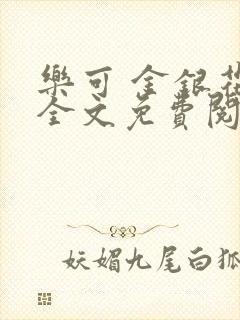 樂可 金銀花
全文免費閱
妖媚九尾白狐